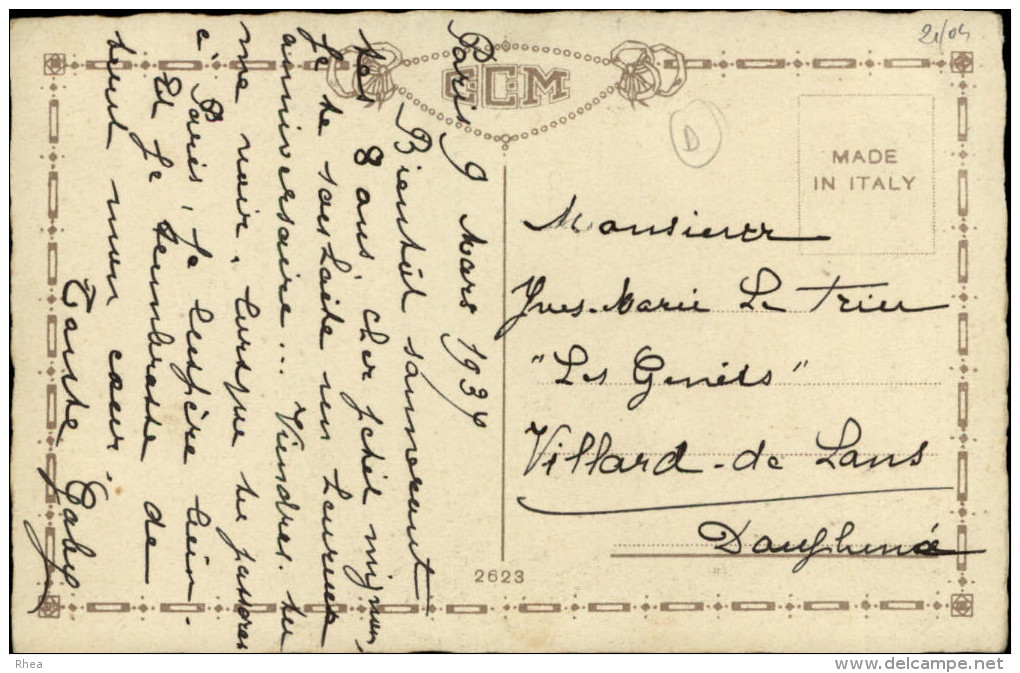 Paris 9 Mars 1934
Bientôt sonneront
tes 8 ans cher petit mignon,
Je te souhaite un heureux
anniversaire... Viendras-tu
me voir, lorsque tu passeras
à Paris, je l'espère bien.
Et je t'embrasse de
tout mon cœur.
Tante Gaby
C.C.M
21/04
D
MADE
IN ITALY
Monsieur
Yves-Marie Le Trieu
"Les Genêts"
Villard-de Lans
Dauphiné
2623
Rhea
www.delcampe.net